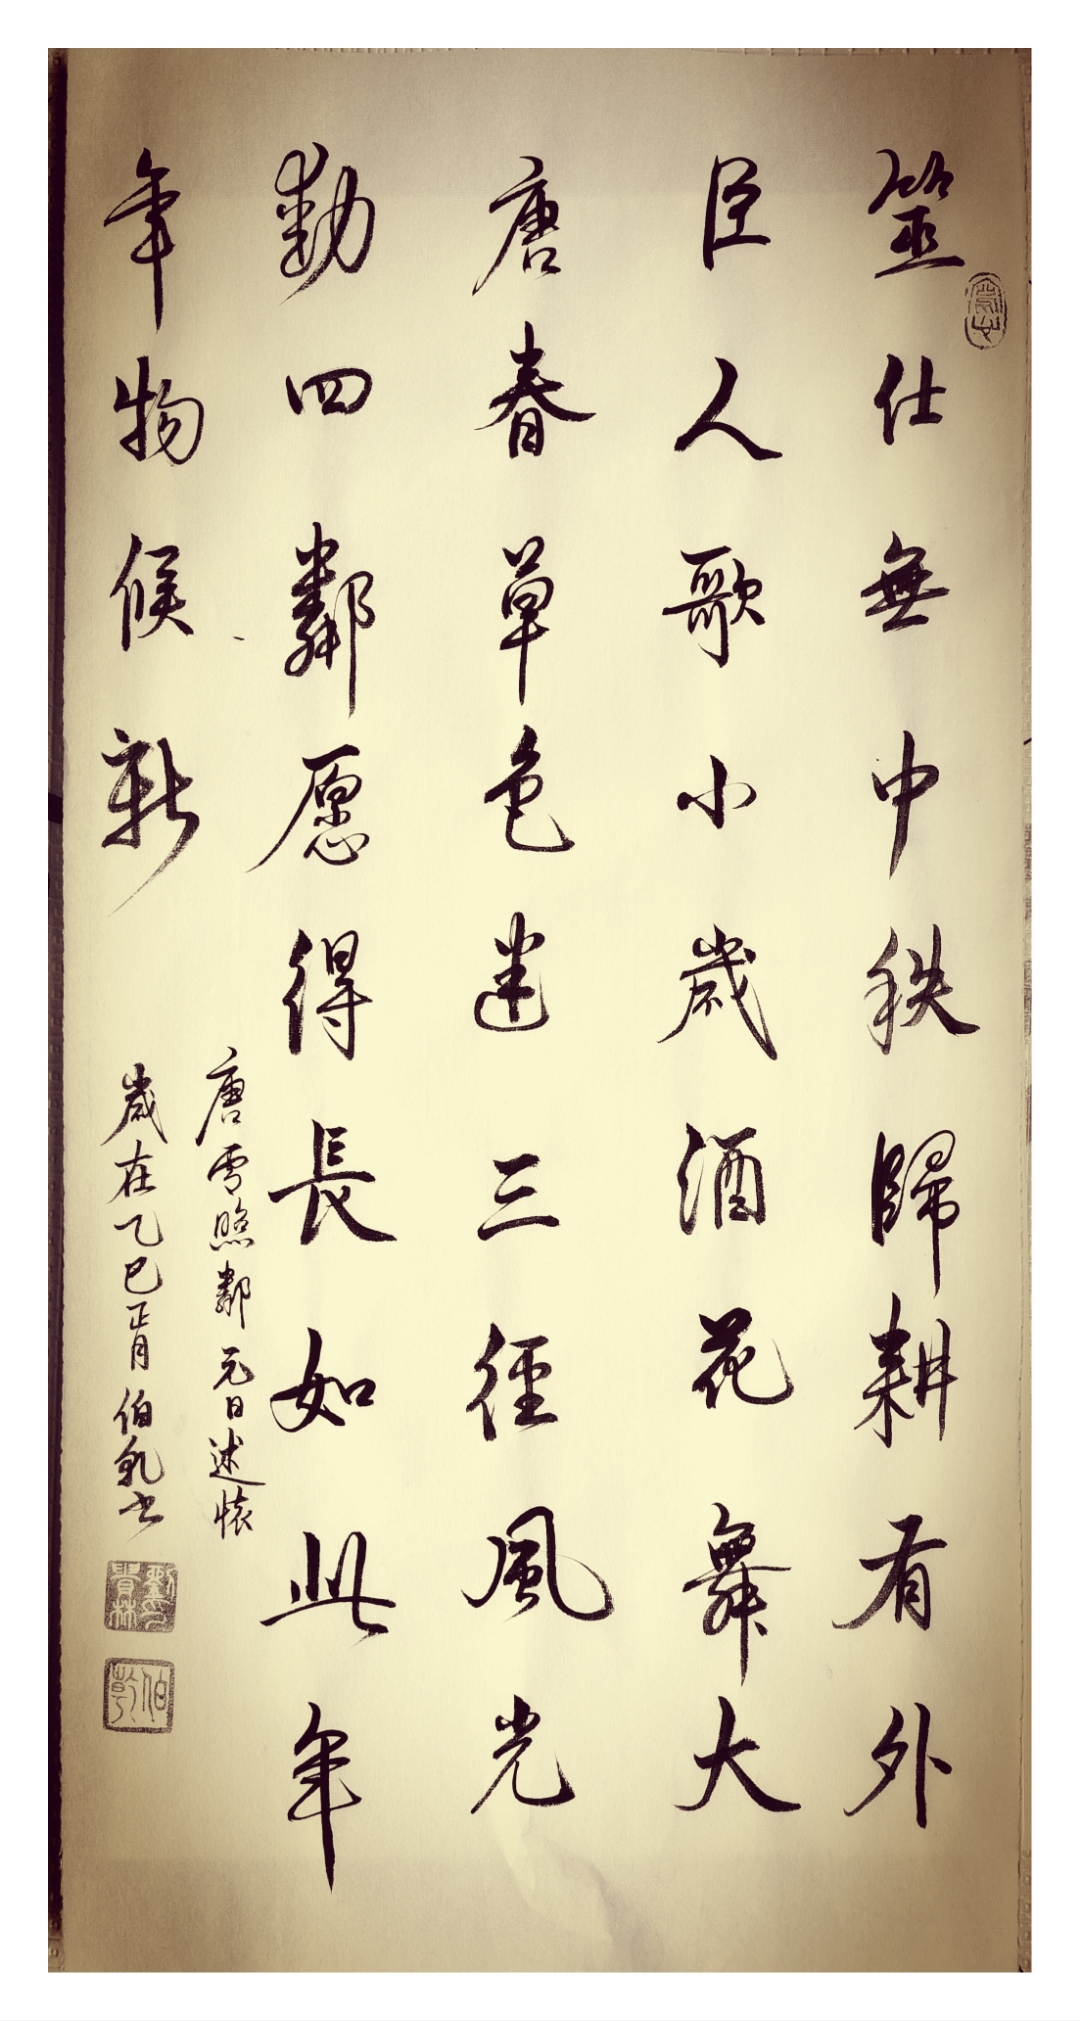 筮仕無中秩歸耕有外
臣人歌小歲酒花舞大
唐春草色迷三徑風光
動四鄰愿得長如此年
年物候新
唐盧照鄰元日述懷
歲在乙巳正月伯乾書
劉印貴林
伯乾